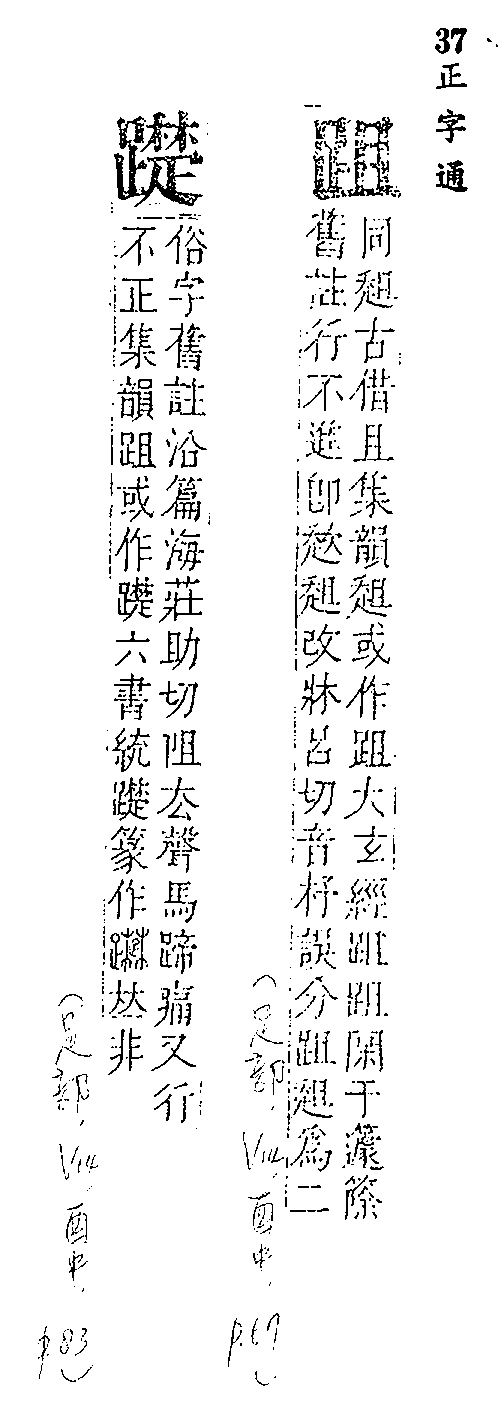 37正字通
跙
同趄古借且集韻趄或作跙大玄經跙跙閑于蘧篨
舊註行不進卽趑趄改牀呂切音杼誤分跙趄爲二
(足部, V14, 酉中, p.67)
䠂
俗字舊註沿篇海莊助切阻去聲馬蹄痛又行
不正集韻跙或作䠂六書統䠂篆作 𠀤非
(足部, V14, 酉中, p.83)